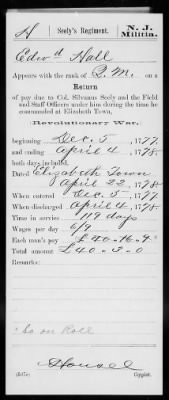 H | Seely's Regiment. | N. J. Militia.
Edwd Hall
Appears with the rank of Q. M. on a
Return
of pay due to Col. Silvanus Seely and the Field
and Staff Officers under him during the time he
commanded at Elizabeth Town,
Revolutionary War.
beginning Dec. 5, 1777,
and ending April 4, 1778,
both days included.
Dated Elizabeth Town
April 22, 1778
When entered Dec. 5, 1777
When discharged April 4, 1778
Time in service 119 days
Wages per day 6/9
Each man's pay £40-16-9
Total amount £40-3-0
Remarks:
*so on Roll
Copyist.